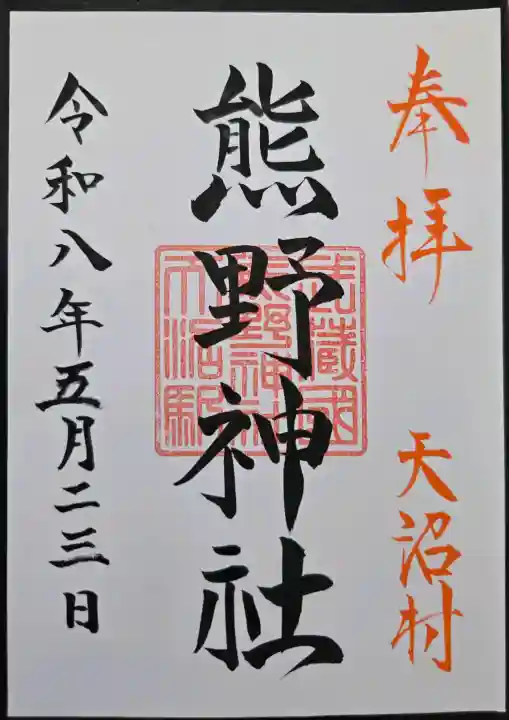 奉拝
天沼村
熊野神社
武蔵国
熊野神社
天沼駅
令和八年五月二三日